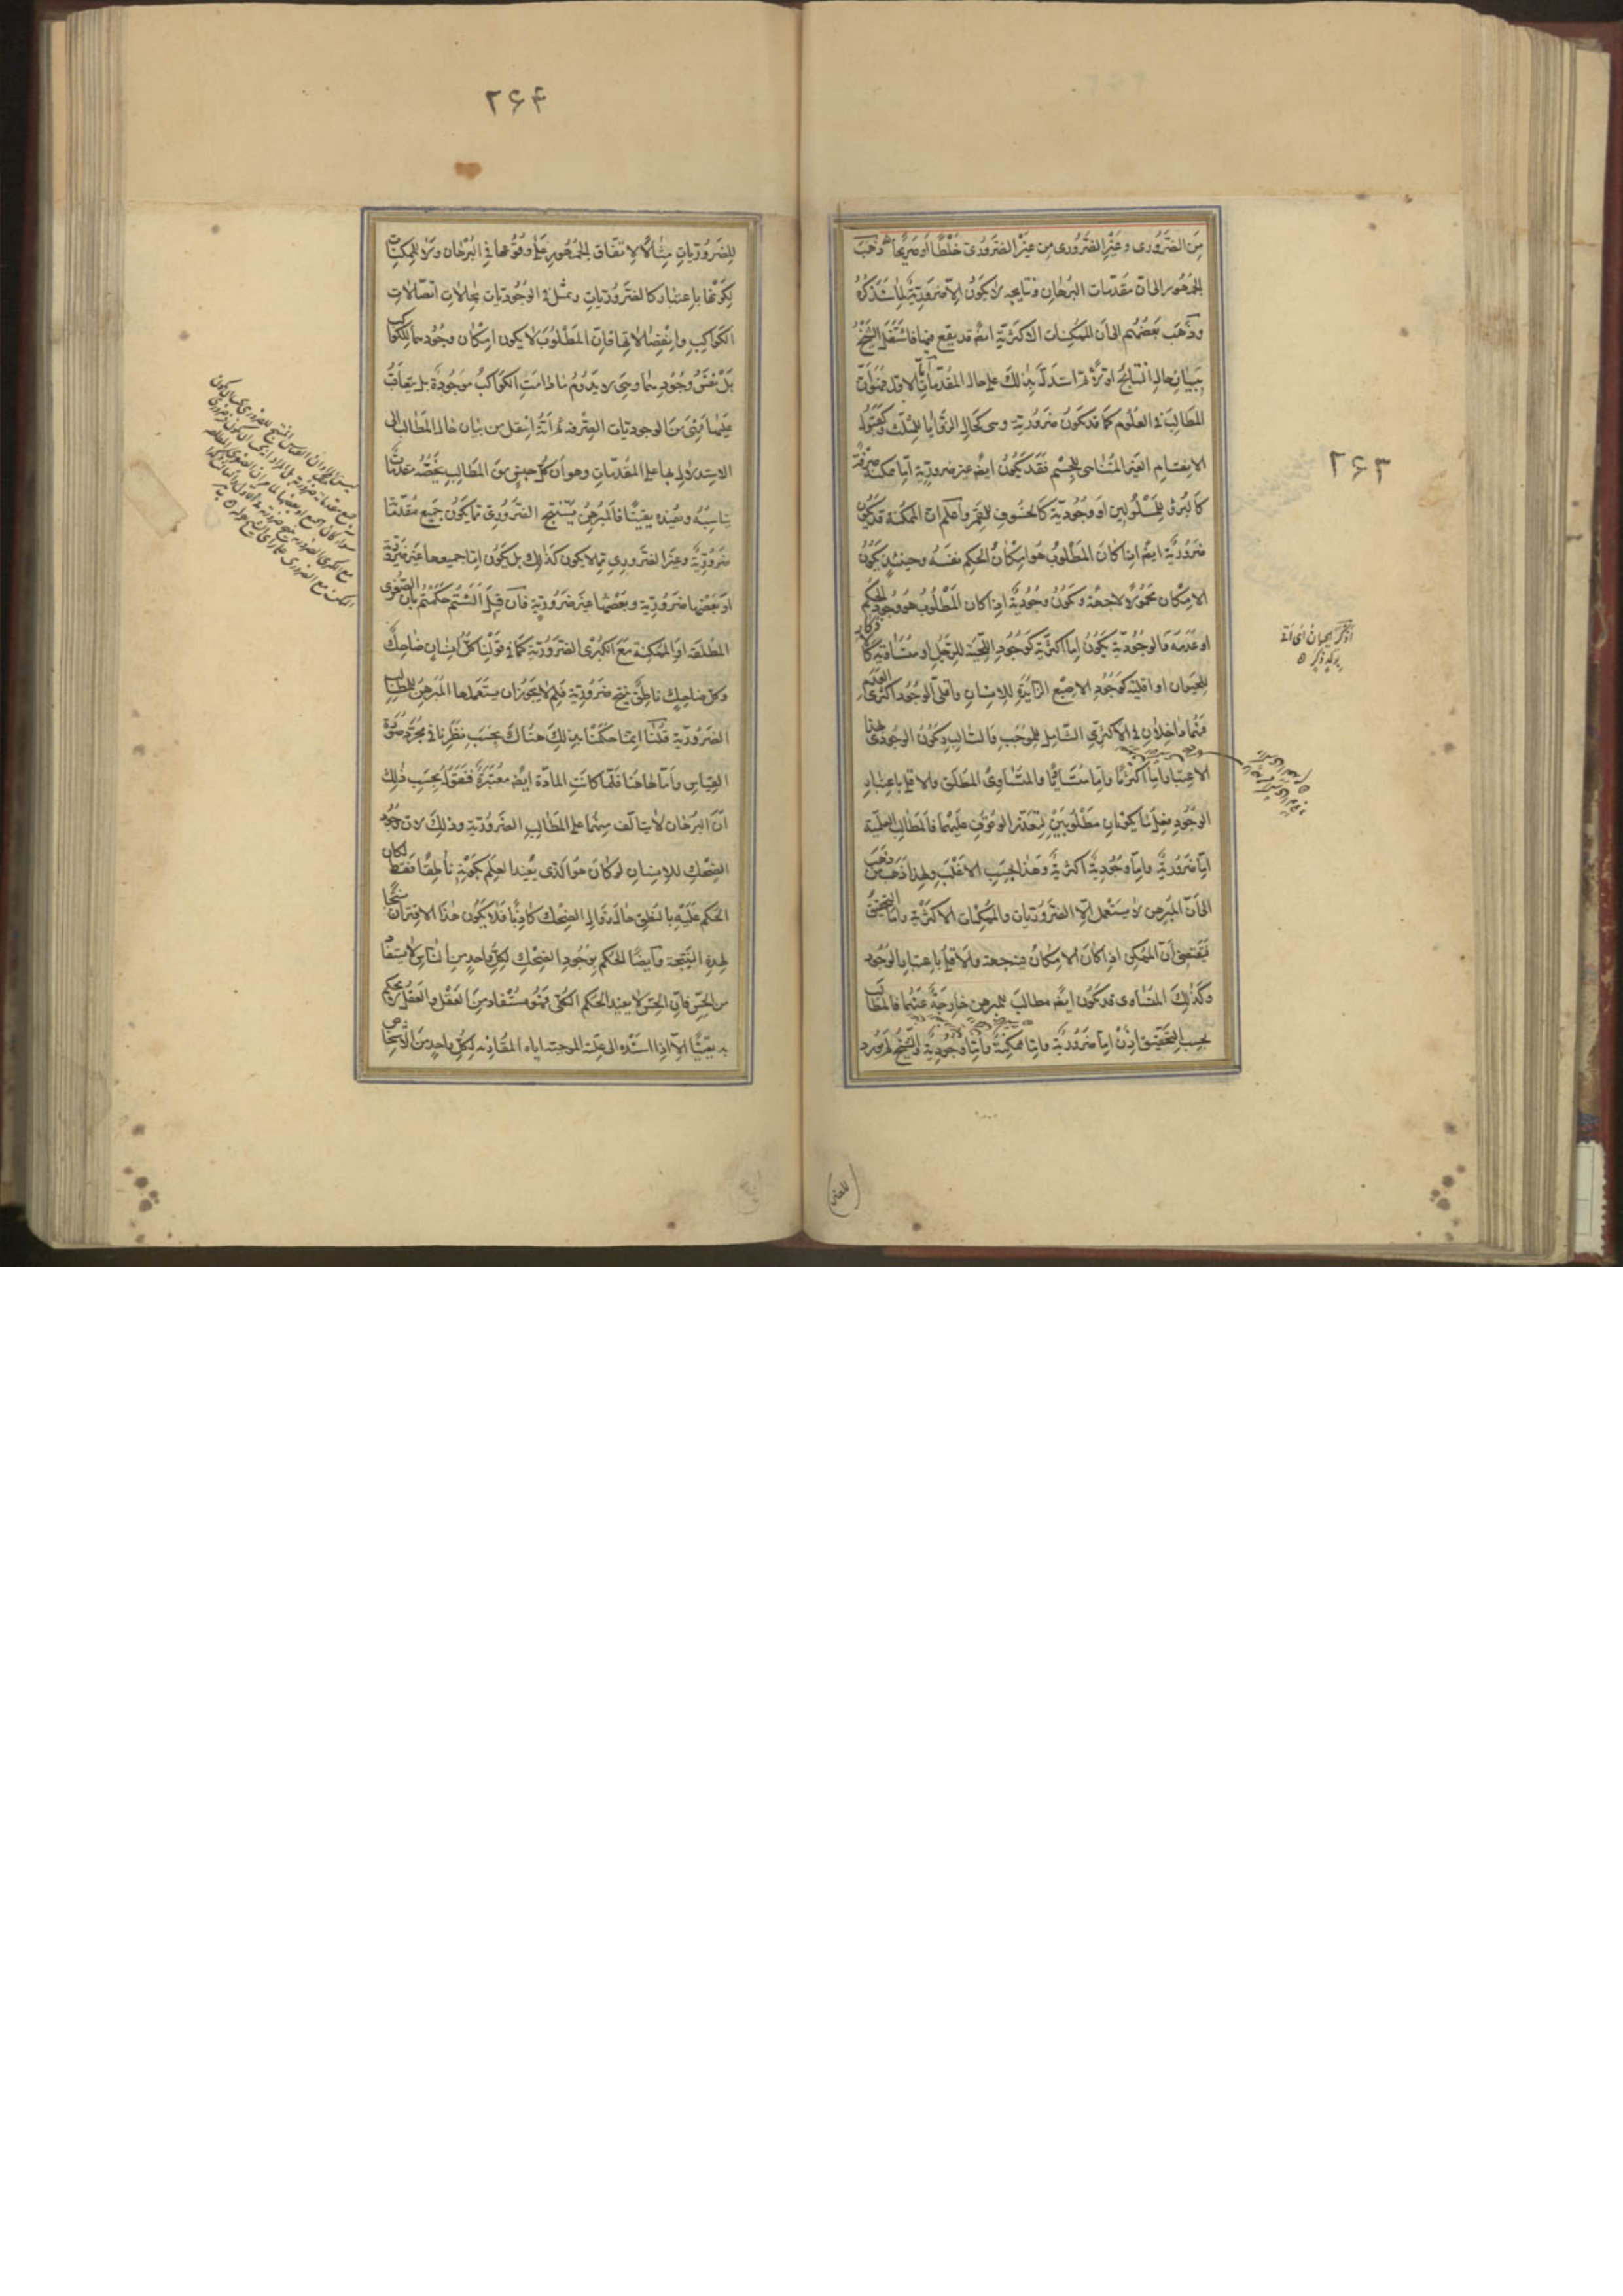 ۲۶۳
مِنَ الضَّرُورى وغَيْرُ الضَّرُورى مِن غيَرْ الضَّرورى خَلْطًا أو صَرِيحًا وذَهَبَ
الجُمْهُور الى انّ مقدّمات البرُهان ونتايجه لا يكَونُ الاّ ضَرورّيةً لما سَنذكرُهُ
وذَهَبَ بَعضُهُم الى أن الممُكِنات الاكثريّة ايضًا قد يقع فيها فاشتَغَل الشَّيْخُ
ببَيانِ حال النتايج اوّلاً ثمّ استَدلّ بذلكَ على حال المقُدّماتِ ثانيًا امّا الاوّل فهُو أنّ
المطالبَ فى العلُوم كما قد يكَونُ ضَروريّة وهى كحَال الزّوايا للمثلّث وكقبوُل
الانقِسام الغيَر المتَناهى للجِسْم فَقَد يكَوُنُ ايضًا غير ضروريّة امّا ممكنة صِرْفَةً
كالبُرْء للمَسْلُولين او وجُوديّة كالخسُوف للقمَر واعلم انّ الممكنة قد يكَوُن
ضَروُريّة ايضًا اذا كانَ المطْلوُبُ هو امِكانُ الحكِم نفسَهُ وحينئذٍ يكَونُ
الامِكان محمُولًا لاجهةً وتكَونُ وجُوديّةً اذا كان المَطلُوبُ هو وجُودُ الحكم
او عدَمه فالوجُوديّة يكَونُ امِّا اكثريّة كوجُودِ اللّحْيَة للرّجل او متُساوَية كالاذكار
للحيَوان او اقليّة كوَجُود الاصبع الزّايِدَة للانِسانِ واقلّى الوجوُد اكثرى العَدَم
فهُما داخِلان فى الاكثرىّ الشّامِل للموُجب والسّالب ويكَوُن الوجُودى بهذا
الاعتبار امِّا اكثرِيًّا وامّا متُساويًا والمتُساوى المطلق والاقلى باعتبار
الوجُودِ فقلّما يكونان مَطْلُوبَيْن لتَعذّر الوقوُفِ علَيهما فالمطالِب العلميّة
امّا ضَروُريّة وامّا وجُودية اكثريّة وهَذا بحَسَب الاغلَبِ ولهذا ذَهَبَ مَن ذهَبَ
الى انّ المبُرهِن لا يستَعمِل الاّ الضَّروُريّات والممكُنات الاكثرية وامّا التّحقيق
فَيقتضى أنّ الممكن اذا كانَ الامكانُ فيه جهة والاقلىّ باعتبار الوجُود
وكَذلكَ المتُساوى قد يكَون ايضًا مطالبَ للمبُرهن خارِجةً عنهُما فالمطالب
بحسِب التّحقيق اذنْ امّا ضَرورُيّة وامّا ممُكِنة وامّا وُجُوديّة والشّيخ لم يورد
اذكر الحيوان اى انه
يولد ذكر
۲۶۴
للضَروُريّاتِ مِثالًا لاِتفّاق الجُمْهوُر عَلى وقوُعها فِى البُرهْان وَلا للمُمكِنات
لكَونها باعتبار كالضّروُريّاتِ ومثّل فى الوجُوديّات بحَالات اتّصالاتِ
الكَواكِبِ وانفِصالاتها فانّ المَطلُوبَ لا يكون امِكان وجُودهما للكَواكب
بَلْ نفسَ وُجُودِهما وهِىَ لا يَدوُمُ ما دامَت الكَواكبُ موَجُودَة بل يتعاقبُ
علَيها فهِىَ مِن الوجوديّات الصِّرفة ثمّ انّهُ انتقل من بَيان حال المطَالب الى
الاستِدلال بها على المقُدّماتِ وهو أن كُلّ جِنسٍ مِنَ المطَالِب يخصّه مقدّماتٌ
يناسِبُهُ ويفُيده يقينًا فالمبُرهِنُ يسَتَنتج الضّروُرىّ ممّا يكَونُ جَميع مُقدّماتها
ضَروُريّة وغيَر الضَّرورى مِمّا لا يكون كَذلكَ بل يكَوُن امّا جميعها غير ضَروريّة
او بَعضُها ضَروُريّة وبَعْضُها غيرَ ضَروُريّة فان قيل ألَسْتُم حَكَمتُم بأن الصّغرى
المطُلَقَة او الممكِنة مَعَ الكُبْرى الضَّروُريّة كما فى قولْنا كلّ انِسانٍ ضاحِك
وكلّ ضاحِكٍ ناطِقٌ ينُتج ضَروُريّة فلِم لا يجوَز أن يستَعملها المبُرهِنُ للمطالب
الضَروُريّة قُلنا انّما حَكَمْنا بذلكَ هناكَ بحَسَب نَظَرِنا فى مجُرّد صُورَة
القِياس وأمّا هاهنا فلمّا كانتِ المادّة ايضًا معُتَبَرةً فنَقولُ بحسَب ذلكَ
انّ البُرهان لا يتألّف منِهُما على المطالب الضَّروُريّة وذلكَ لانّ وجُودَ
الضّحك للانِسانِ لو كانَ هو الّذى يفُيد العِلم بكَونهِ ناطقًا فقط لكان
الحكم عَليَهِ بالنطق حال زَوال الضّحك كاذِبًا فلا يكَوُن هذا الاقتران مُنتجًا
لهذهِ النّتيَجة وايضًا الحكم بوجُود الضّحك لِكُلّ واحدٍ من النّاس لا يستفاد
من الحسّ فانّ الحِسّ لا يفيد الحكم الكلّى فَهُو مسُتفاد من العَقْل والعَقل لا يحكم
به يقينًا الاّ اذا اسنَدهُ الى علّته الموجبة اياه المقارنة لِكُلّ واحِدٍ من الاشخاص